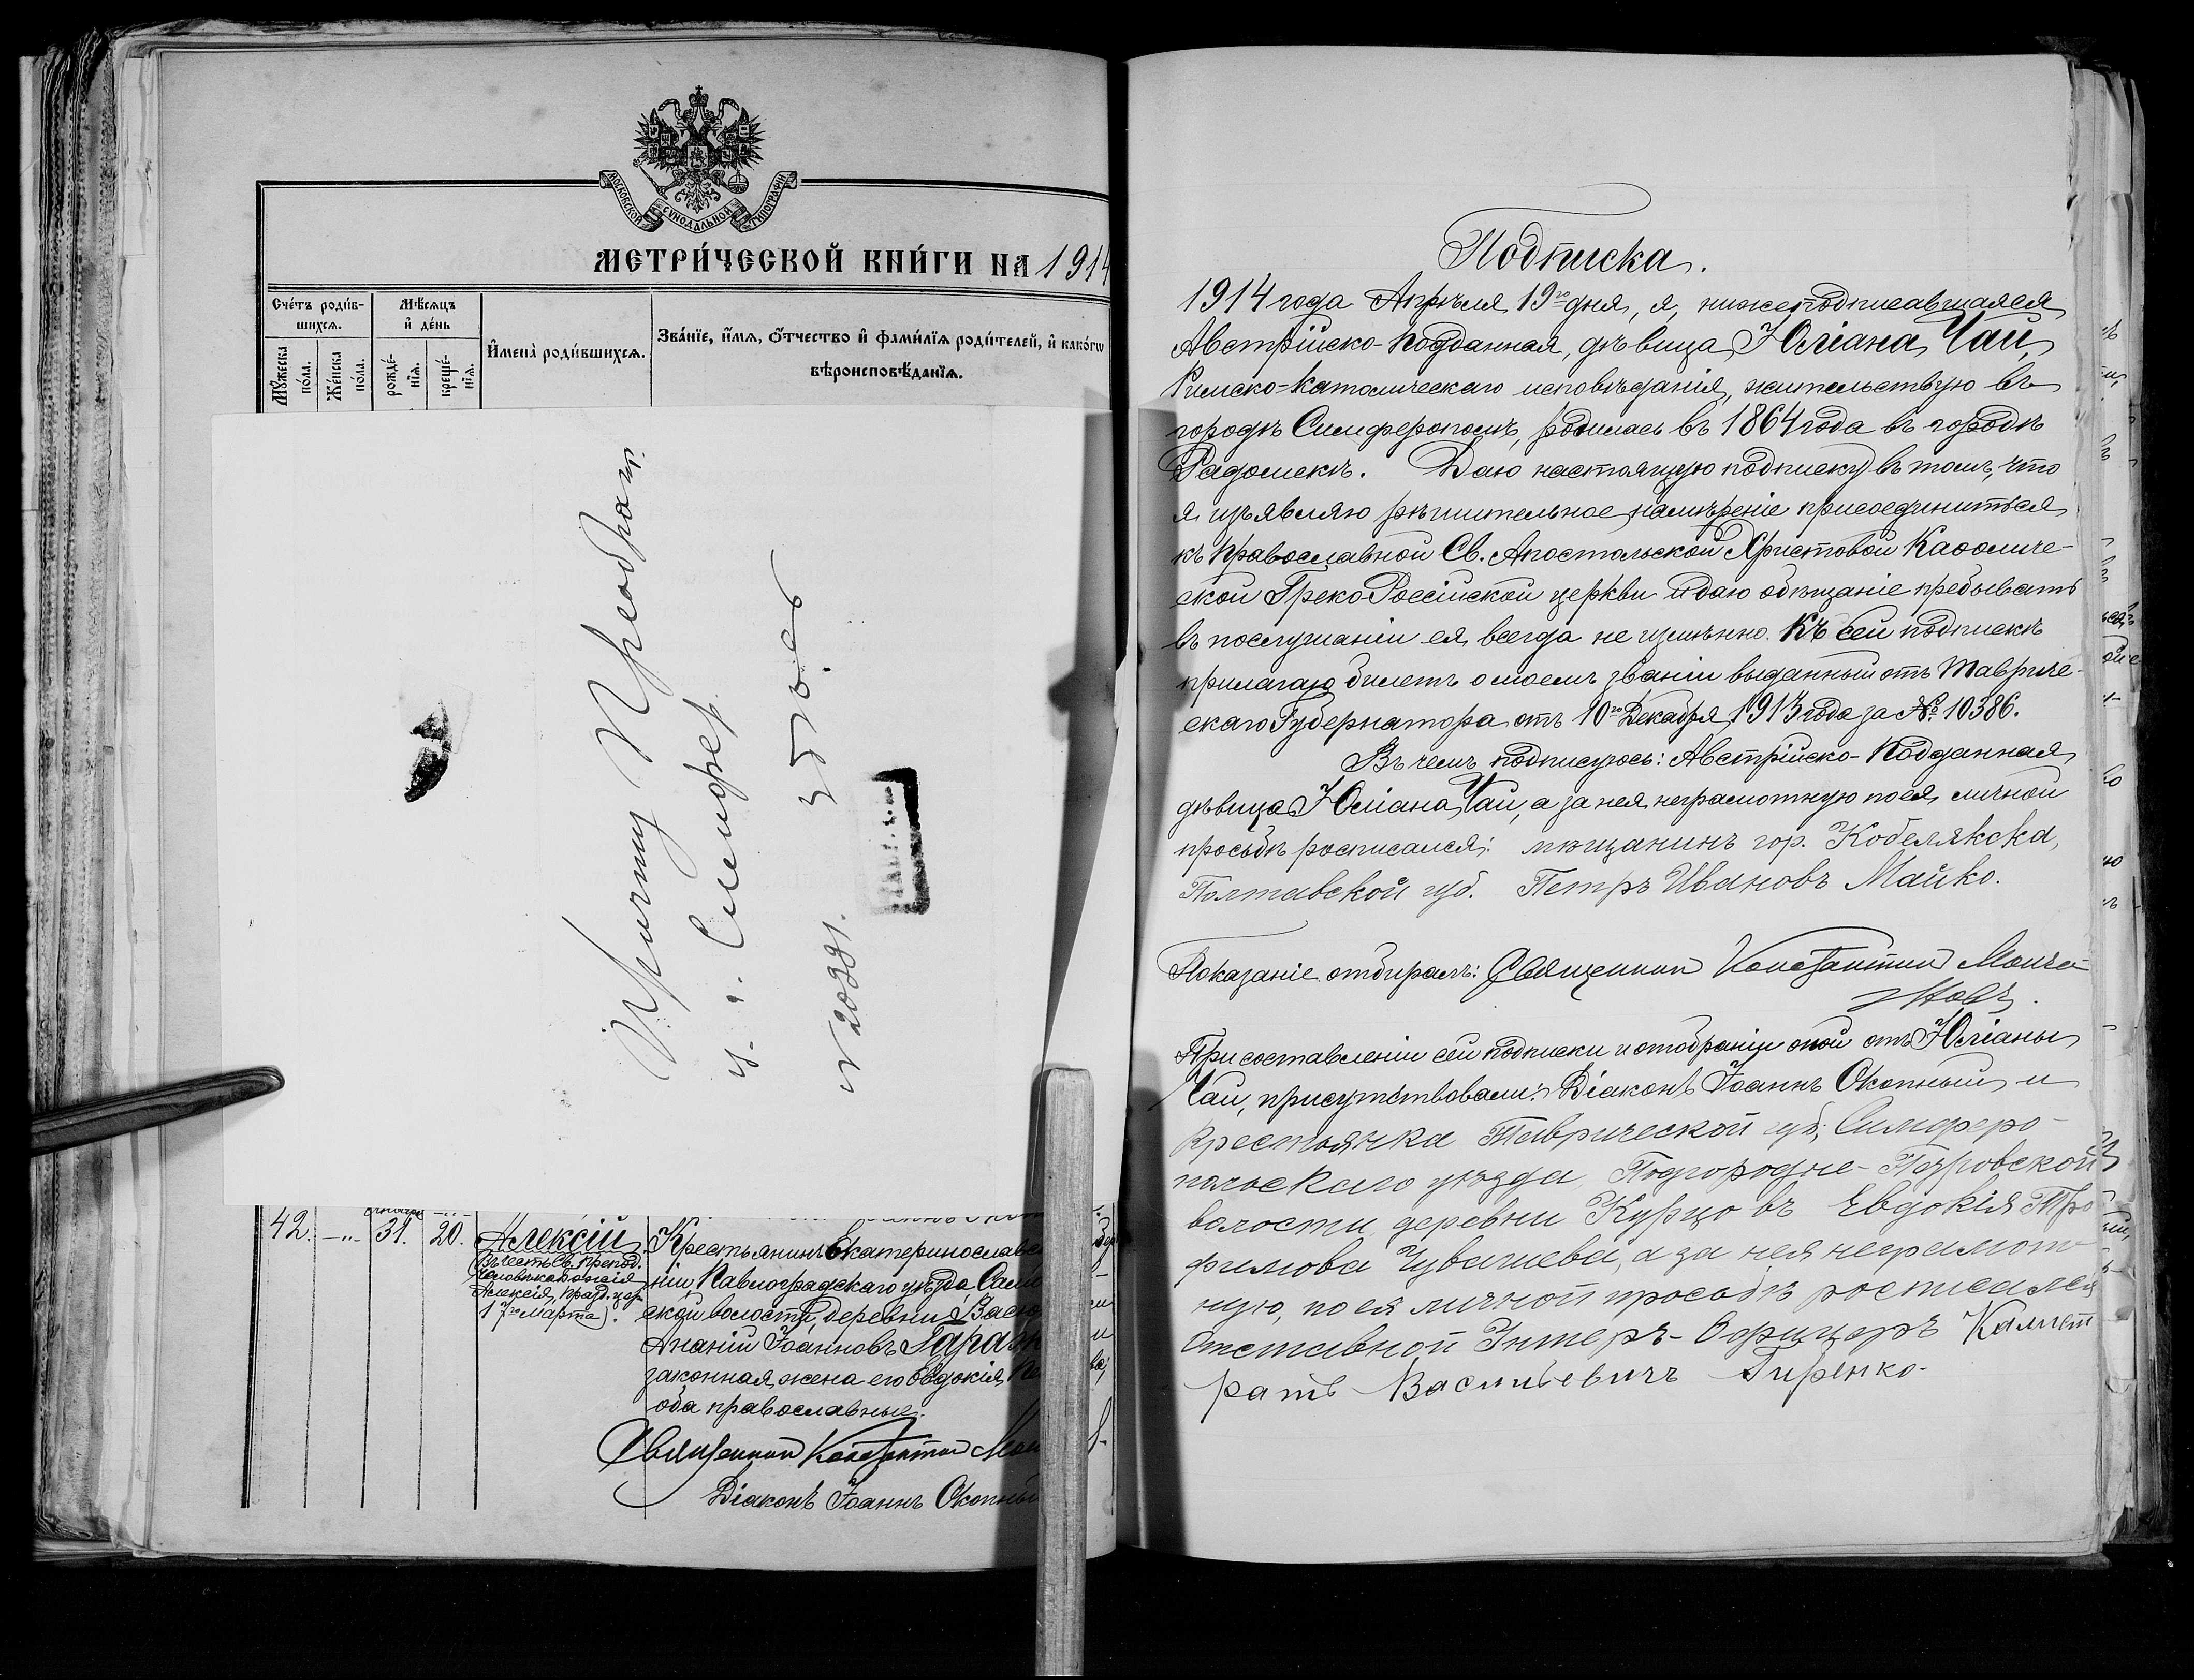 МОСКОВСКОЙ СѴНОДАЛЬНОЙ ТИПОГРАФІИ
МЕТРИ́ЧЕСКОЙ КНИ́ГИ НА 1914
Сче́тъ роди́в-
шихся.
Мѣсяцъ
и҆ де́нь
Мꙋжеска по́ла.
Же́нска по́ла.
рожде́-
нїя.
креще́-
нїя.
И҆мена̀ роди́вшихся.
Зва́нїе, и҆́мя, ѻ҆́тчество и҆ фами́лїя роди́телей, и҆ како́гѡ
вѣроисповѣ́данїя.
Причту Преображ.
ц. г. Симфер.
№ 20991.
42. -"- 31. 20.
Алексій
Въ честь св. препод.
человѣка Божія
Алексія, празд. цер.
17го Марта).
Крестьянинъ Екатеринославс
ніи, Павлоградскаго уѣзда
ской волости, деревни
Ананій Іоанновъ
законная жена его Евдокія
оба православные.
Священник Константин
Діаконъ Іоаннъ Окопный
Подписка.
1914 года Апрѣля 19го дня, я, нижеподписавшаяся
Австрійско-подданная, дѣвица Юліана Чай,
Римско-католическаго исповѣданія, жительствую въ
городѣ Симферополѣ, родилась въ 1864 года въ городѣ
Радомскѣ. Даю настоящую подписку въ томъ, что
я изъявляю рѣшительное намѣреніе присоединиться
къ православной Св. Апостольской Христовой Каѳоличе-
ской Греко-Россійской церкви и даю обѣщаніе пребывать
въ послушаніи ея всегда не измѣнно. Къ сей подпискѣ
прилагаю билетъ о моемъ званіи выданный отъ Тавриче-
скаго Губернатора отъ 10го Декабря 1913 года за № 10386.
Въ чемъ подписуюсь: Австрійско-Подданная
дѣвица Юліана Чай, а за нея неграмотную по ея личной
просьбѣ росписался: мѣщанинъ гор. Кобелякска,
Полтавской губ. Петръ Ивановъ Майко.
Показаніе отбиралъ: Священник Константин
При составленіи сей подписки и отобраніи оной отъ Юліаны
Чай, присутствовали: Діаконъ Іоаннъ Окопный и
крестьянка Таврической губ., Симферо-
польскаго уѣзда, Подгородне-Петровской
волости, деревни Курцовъ Евдокія Тро
фимова Чувачиева, а за нея неграмот
ную, по ея личной просьбѣ росписался
Отставной Унтеръ-Офицеръ
Васильевичъ Гиренко.